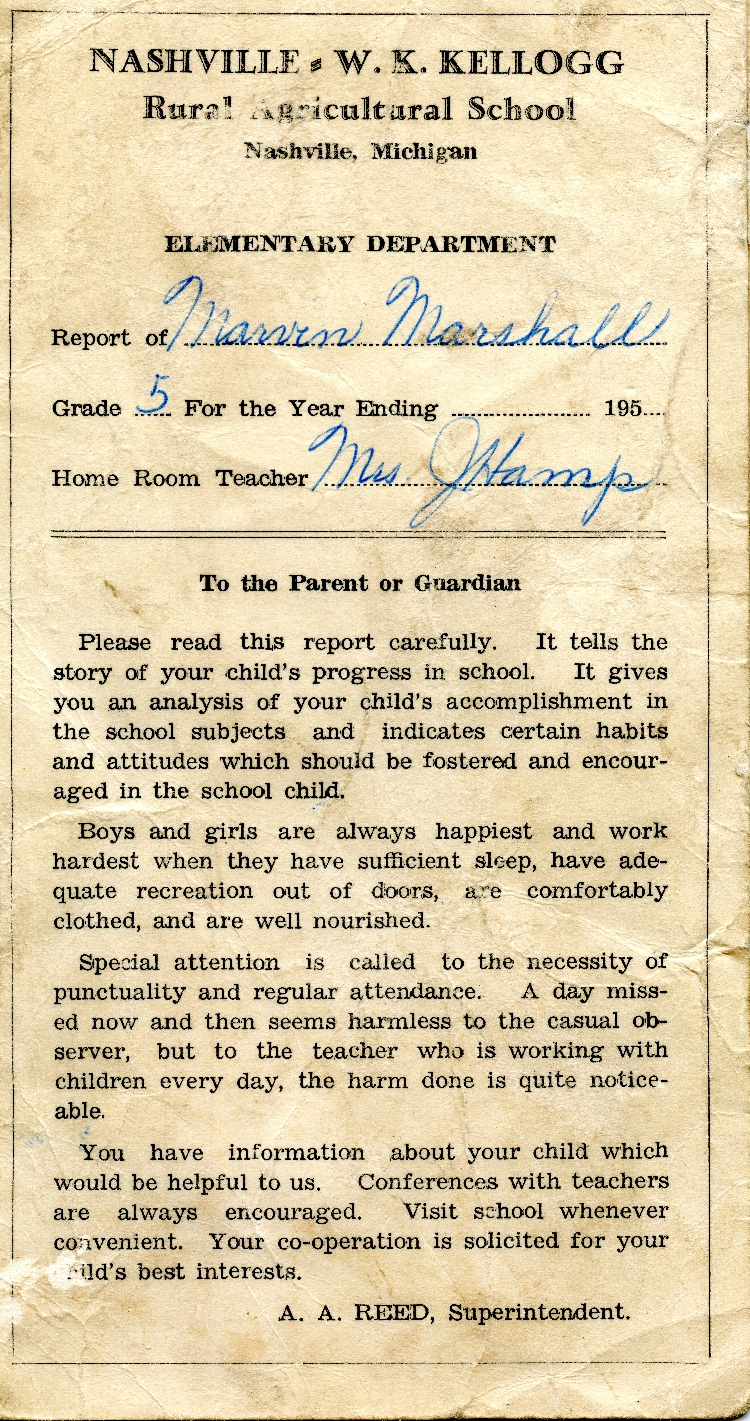 NASHVILLE - W. K. KELLOGG
Rural Agricultural School
Nashville, Michigan
ELEMENTARY DEPARTMENT
Report of Marvin Marshall
Grade 5 For the Year Ending .................... 195....
Home Room Teacher Mrs J Hamp
To the Parent or Guardian
Please read this report carefully. It tells the
story of your child's progress in school. It gives
you an analysis of your child's accomplishment in
the school subjects and indicates certain habits
and attitudes which should be fostered and encour-
aged in the school child.
Boys and girls are always happiest and work
hardest when they have sufficient sleep, have ade-
quate recreation out of doors, are comfortably
clothed, and are well nourished.
Special attention is called to the necessity of
punctuality and regular attendance. A day miss-
ed now and then seems harmless to the casual ob-
server, but to the teacher who is working with
children every day, the harm done is quite notice-
able.
You have information about your child which
would be helpful to us. Conferences with teachers
are always encouraged. Visit school whenever
convenient. Your co-operation is solicited for your
child's best interests.
A. A. REED, Superintendent.